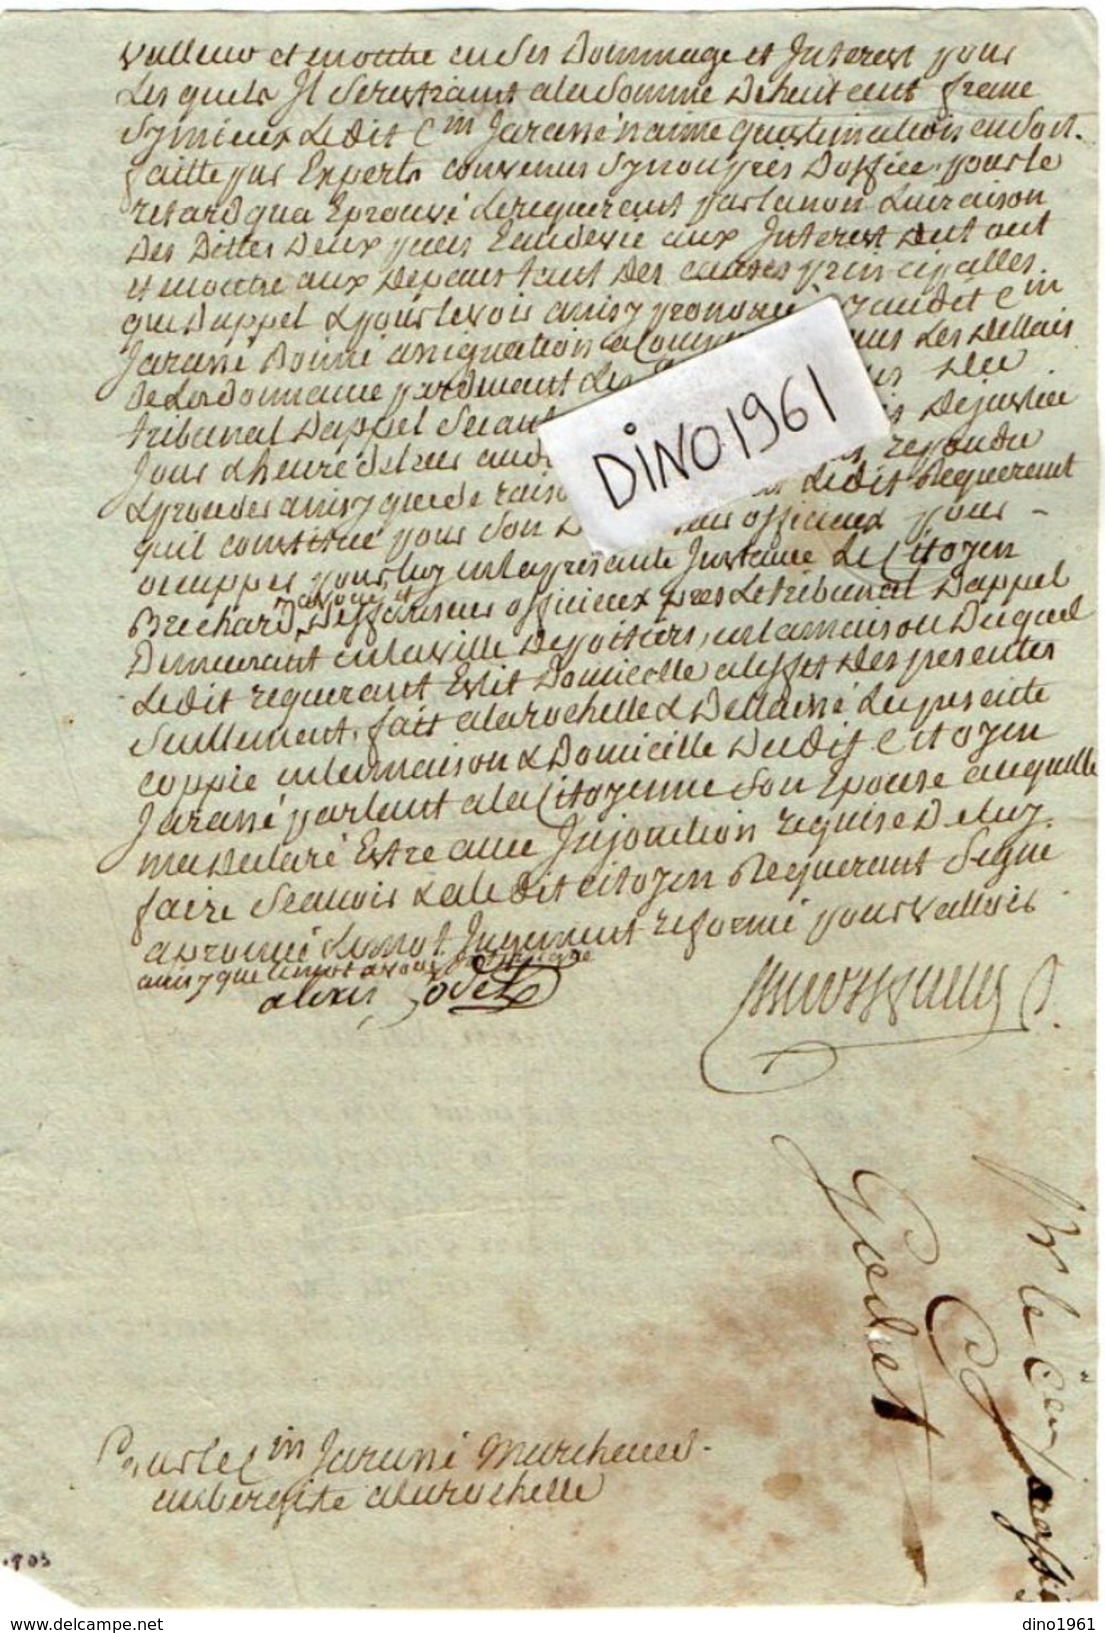 valleur et mettre en Ses Dommage et Interest pour
Les quels Il Se restraint a la Somme de huit cent franc
Sy mieux Ledit Cin Jarassé n'aime qu'estimation en Soit
faitte par Experts convenus Sy non pris D'office, pour le
retard qu'a Eprouvé Le requerant par la non Livraison
Des Dittes Deux pieces Eaudevie aux Interest du tout
et mettre aux Depans tant Des causes principalles
que D'appel & pour le voir ainsy prononcé Jay audit Cin
Jarassé Donné assignation a Comp Les Dellais
De L'ordonnance pardevant Les Du
tribunal D'appel Seant De justice
Jour & heure de repondre
& proceder ainsy que de raison Ledit Requerant
qu'il constitué pour Son officieux pour
occupper pour luy en la presente Instance Le Citoyen
Brechard, avoué et Deffenseur officieux pres Le tribunal D'appel
Demeurant en la ville De poitiers, en la maison Duquel
Ledit requerant Eslit Domicille a l'effet Des presentes
Seullement, fait a la rochelle & Dellaissé La presente
coppie en la maison & Domicille Dudit Citoyen
Jarassé parlant a la Citoyenne Son Epouse a laquelle
ma Declaré Estre avec Injonction requise De luy
faire Scavoir & a le Dit Citoyen Requerant Signé
aprouvé Le mot Jugement reformé pour valloir
ainsy que le mot avoué
alexis Godet
Godet
Pour le Cin Jarassé Marchand
aubergiste a la rochelle
DINO1961
dino1961